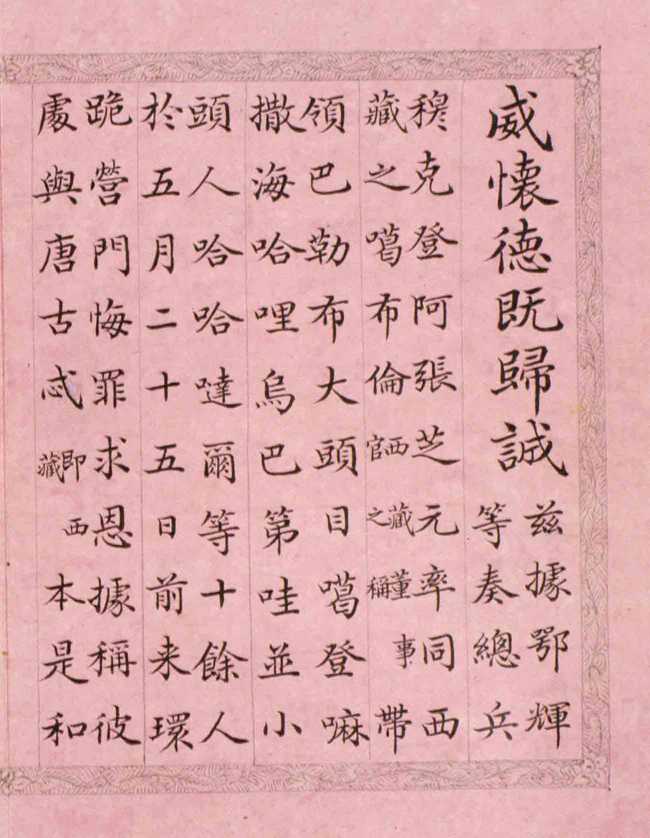 威懷德既歸誠
兹據鄂輝
等奏總兵
穆克登阿張芝元率同西
藏之噶布倫西藏董事官之稱帶
領巴勒布大頭目噶登嘛
撒海哈哩烏巴第哇並小
頭人哈哈噠爾等十餘人
於五月二十五日前来環
跪營門悔罪求恩據稱彼
處與唐古忒即西藏本是和